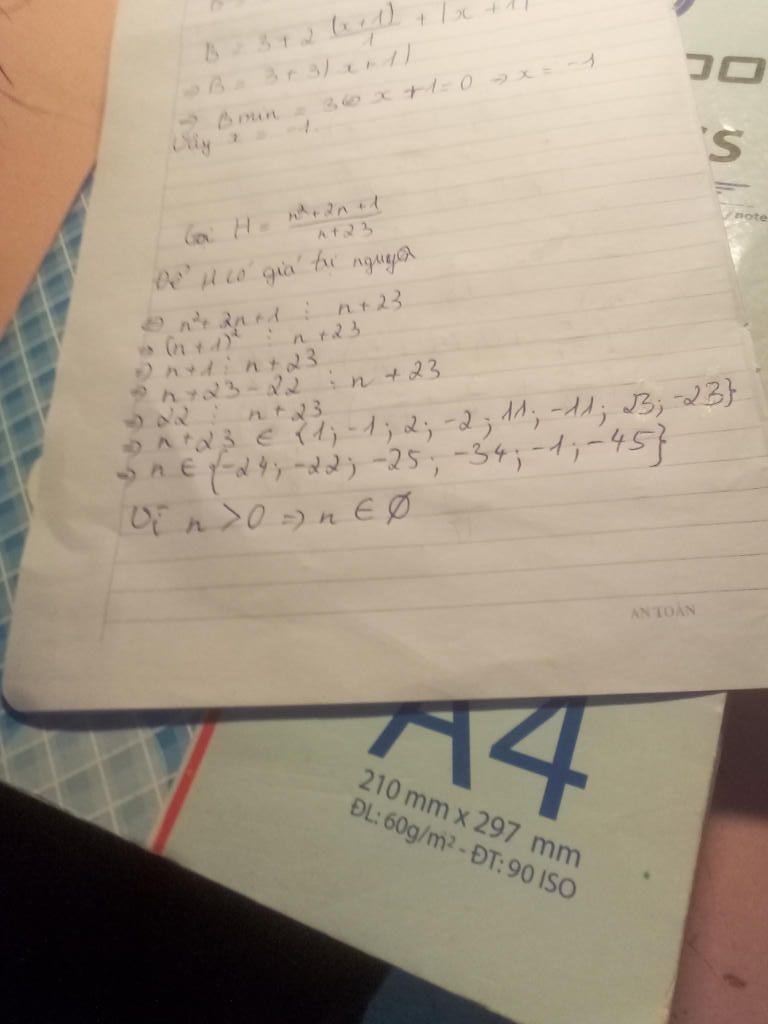 B = 3 + 2 (x+1)/1 + |x+1|
⇒ B = 3 + 3|x+1|
⇒ Bmin = 3 ⇔ x+1=0 ⇒ x = -1
Vậy x = -1.
Gọi H = n²+2n+1/n+23
Để H có giá trị nguyên
⇔ n²+2n+1 ⋮ n+23
⇒ (n+1)² ⋮ n+23
⇒ n+1 ⋮ n+23
⇒ n+23-22 ⋮ n+23
⇒ 22 ⋮ n+23
⇒ n+23 ∈ {1; -1; 2; -2; 11; -11; 23; -23}
⇒ n ∈ {-24; -22; -25; -34; -1; -45}
Vì n > 0 ⇒ n ∈ ∅
AN TOÀN
A4
210 mm x 297 mm
ĐL: 60g/m² - ĐT: 90 ISO